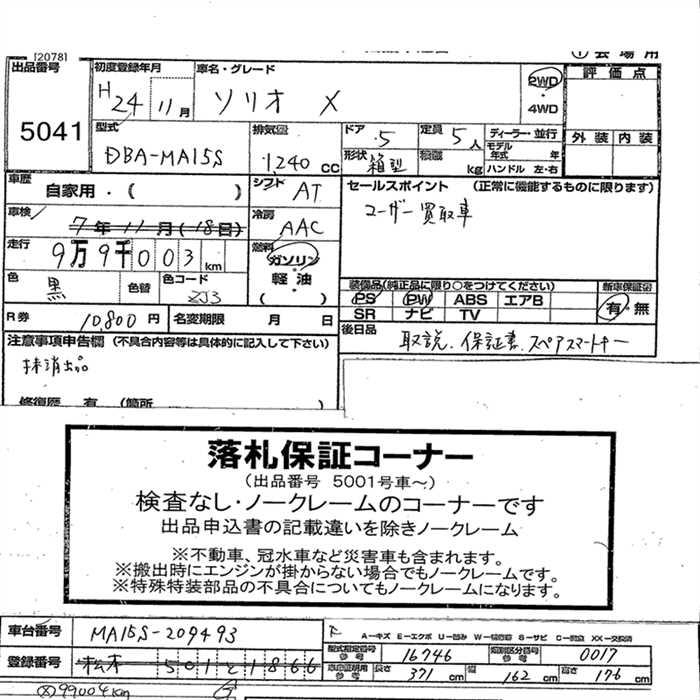 [2078]
① 会 場 用
出品番号
5041
初度登録年月
H24年11月
車名・グレード
ソリオ X
2WD
・
4WD
評価点
外装 内装
型式
DBA-MA15S
排気量
1,240 cc
ドア
5
定員
5人
ディーラー・並行
モデル年式 年
形状
箱型
積載 kg
ハンドル 左・右
車歴
自家用・( )
シフト
AT
セールスポイント (正常に機能するものに限ります)
ユーザー買取車
車検
7年11月(18日)
冷房
AAC
走行
9万9千003km
燃料
ガソリン
・
軽油
( )
色
黒
色替
色コード
ZJ3
装備品(純正品に限り○をつけてください)
新車保証書
PS PW ABS エアB
SR ナビ TV
有・無
R券
10,800円
名変期限 月 日
後日品
取説.保証書.スペアスマートキー
注意事項申告欄 (不具合内容等は具体的に記入して下さい)
抹消出品
修復歴 有 (箇所
落札保証コーナー
(出品番号 5001号車〜)
検査なし・ノークレームのコーナーです
出品申込書の記載違いを除きノークレーム
※不動車、冠水車など災害車も含まれます。
※搬出時にエンジンが掛からない場合でもノークレームです。
※特殊特装部品の不具合についてもノークレームになります。
車台番号
MA15S-209493
A-キズ E-エクボ U-凹み W-補修跡 S-サビ C-腐食 XX-交換済
型式指定番号
参考
16746
類別区分番号
参考
0017
登録番号
松本 501 と 1866
車車証明用
参考
長さ
371 cm
幅
162 cm
高さ
176 cm
99004km